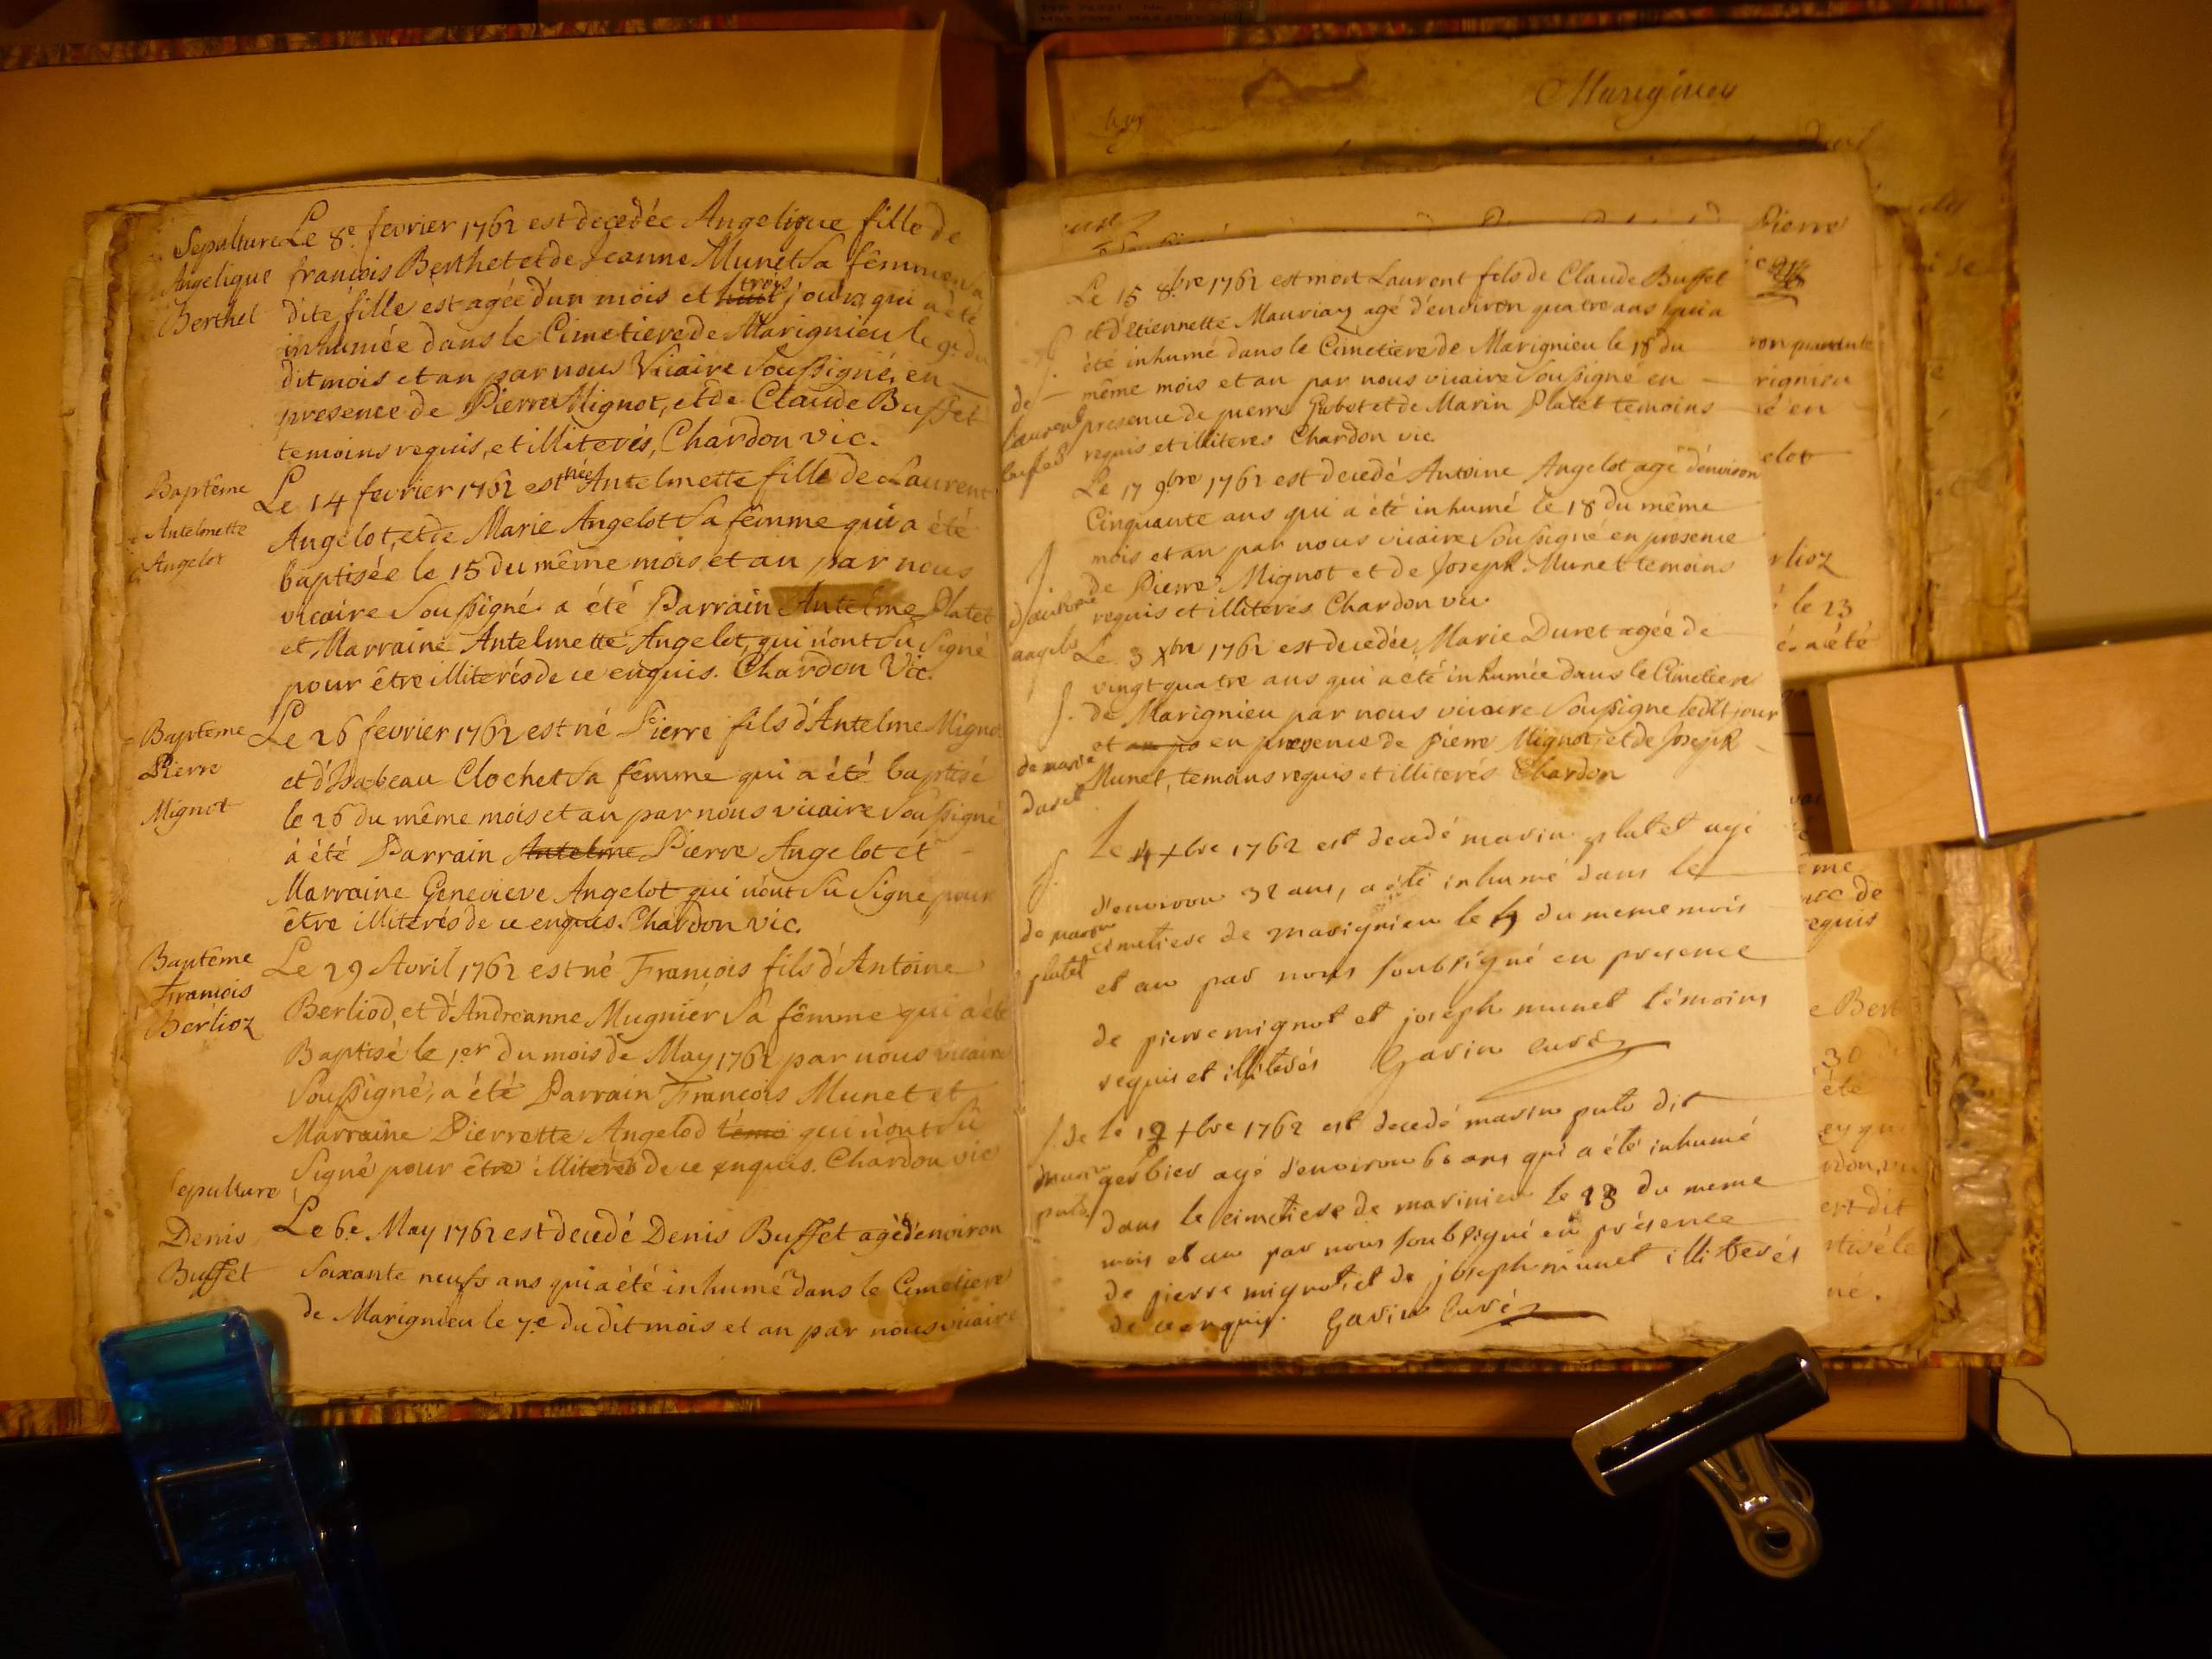 Sepulture
Angelique
Berthet
Le 8e fevrier 1762 est decedée Angelique fille de
francois Berthet et de Jeanne Munet sa fêmme
dite fille est agée d'un mois et huit trois jours, qui a été
inhumée dans le Cimetiere de Marignieu le 9e du
dit mois et an par nous Vicaire soussigné, en
presence de Pierre Mignot, et de Claude Buffet
temoins requis, et illiterés, Chardon vic.
Baptême
Antelmette
Angelot
Le 14 fevrier 1762 est née Antelmette fille de Laurent
Angelot, et de Marie Angelot sa fêmme qui a été
baptisée le 15 du même mois et an par nous
vicaire soussigné a été Parrain Antelme Platet
et Marraine Antelmette Angelot, qui n'ont sû signé
pour être illiterés de ce enquis. Chardon Vic.
Baptême
Pierre
Mignot
Le 26 fevrier 1762 est né Pierre fils d'Antelme Mignot
et d'Isabeau Clochet sa fêmme qui a été baptisé
le 26 du même mois et an par nous vicaire soussigné
à été Parrain Antelme Pierre Angelot et
Marraine Genevieve Angelot qui n'ont sû signé pour
être illiterés de ce enquis. Chardon vic.
Baptême
Francois
Berlioz
Le 29 Avril 1762 est né Francois fils d'Antoine
Berliod, et d'Andréanne Mugnier sa fêmme qui a été
Baptisé le 1er du mois de May 1762 par nous vicaire
soussigné, a été Parrain Francois Munet et
Marraine Pierrette Angelod temoi qui n'ont sû
signé pour être illiterés de ce enquis. Chardon vic
sepulture
Denis
Buffet
Le 6e May 1762 est decedé Denis Buffet agé d'environ
soixante neufs ans qui a été inhumé dans le Cimetiere
de Marignieu le 7e du dit mois et an par nous vicaire
Marignieu
Le 15 8bre 1762 est mort Laurent fils de Claude Buffet
et d'etiennette Mauriaz agé d'environ quatre ans qui a
été inhumé dans le Cimetiere de Marignieu le 18 du
même mois et an par nous vicaire soussigné en
presence de pierre Gubot et de Marin Platet temoins
requis et illiteres Chardon vic.
S.
de
laurent
bufet
Le 17 9bre 1762 est decedé Antoine Angelot agé d'environ
Cinquante ans qui a été inhumé le 18 du même
mois et an par nous vicaire soussigné en presence
de Pierre Mignot et de Joseph Munet temoins
requis et illiterés Chardon vic
S.
d'antoine
angelo
Le 3 Xbre 1762 est decedée Marie Duret agée de
vingt quatre ans qui a été inhumée dans le Cimetiere
de Marignieu par nous vicaire soussigné ledit jour
et an en presence de pierre Mignot, et de Joseph
Munet, temoins requis et illiterés Chardon
S.
de marie
duret
Le 4 xbre 1762 est decedé marin platet agé
d'environ 32 ans, a été inhumé dans le
cimetiere de marignieu le 5 du meme mois
et an par nous soubsigné en presence
de pierre mignot et joseph munet témoins
requis et illiterés Gavin curé
S.
de marin
platet
S. de
marin
puto
le 12 xbre 1762 est decedé marin puto dit
gerbier agé d'environ 60 ans qui a été inhumé
dans le cimetiere de marinieu le 13 du meme
mois et an par nous soubsigné en présence
de pierre mignot et de joseph munet illiterés
de ce enquis. Gavin Curé
Pierre
rignieu
é en
elot
rlioz
le 23
a été
eme
de
requis
e Bert
30
été
ert dit
tisé le
né.